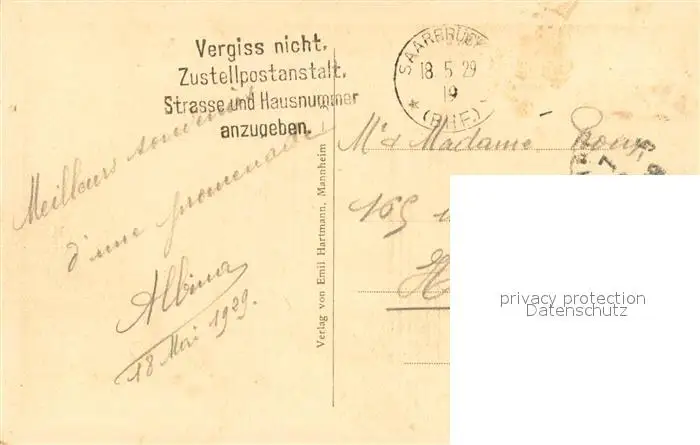 Vergiss nicht,
Zustellpostanstalt,
Strasse und Hausnummer
anzugeben.
SAARBRÜCK
18 5 29
19
* (BHF.)
Meilleurs souvenirs
d'une promenade
Albina
18 Mai 1929.
Verlag von Emil Hartmann, Mannheim
Mr & Madame
165
H
privacy protection
Datenschutz